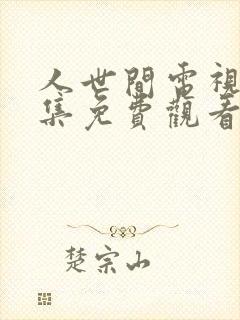 人世間電視
集免費觀看
楚宗山